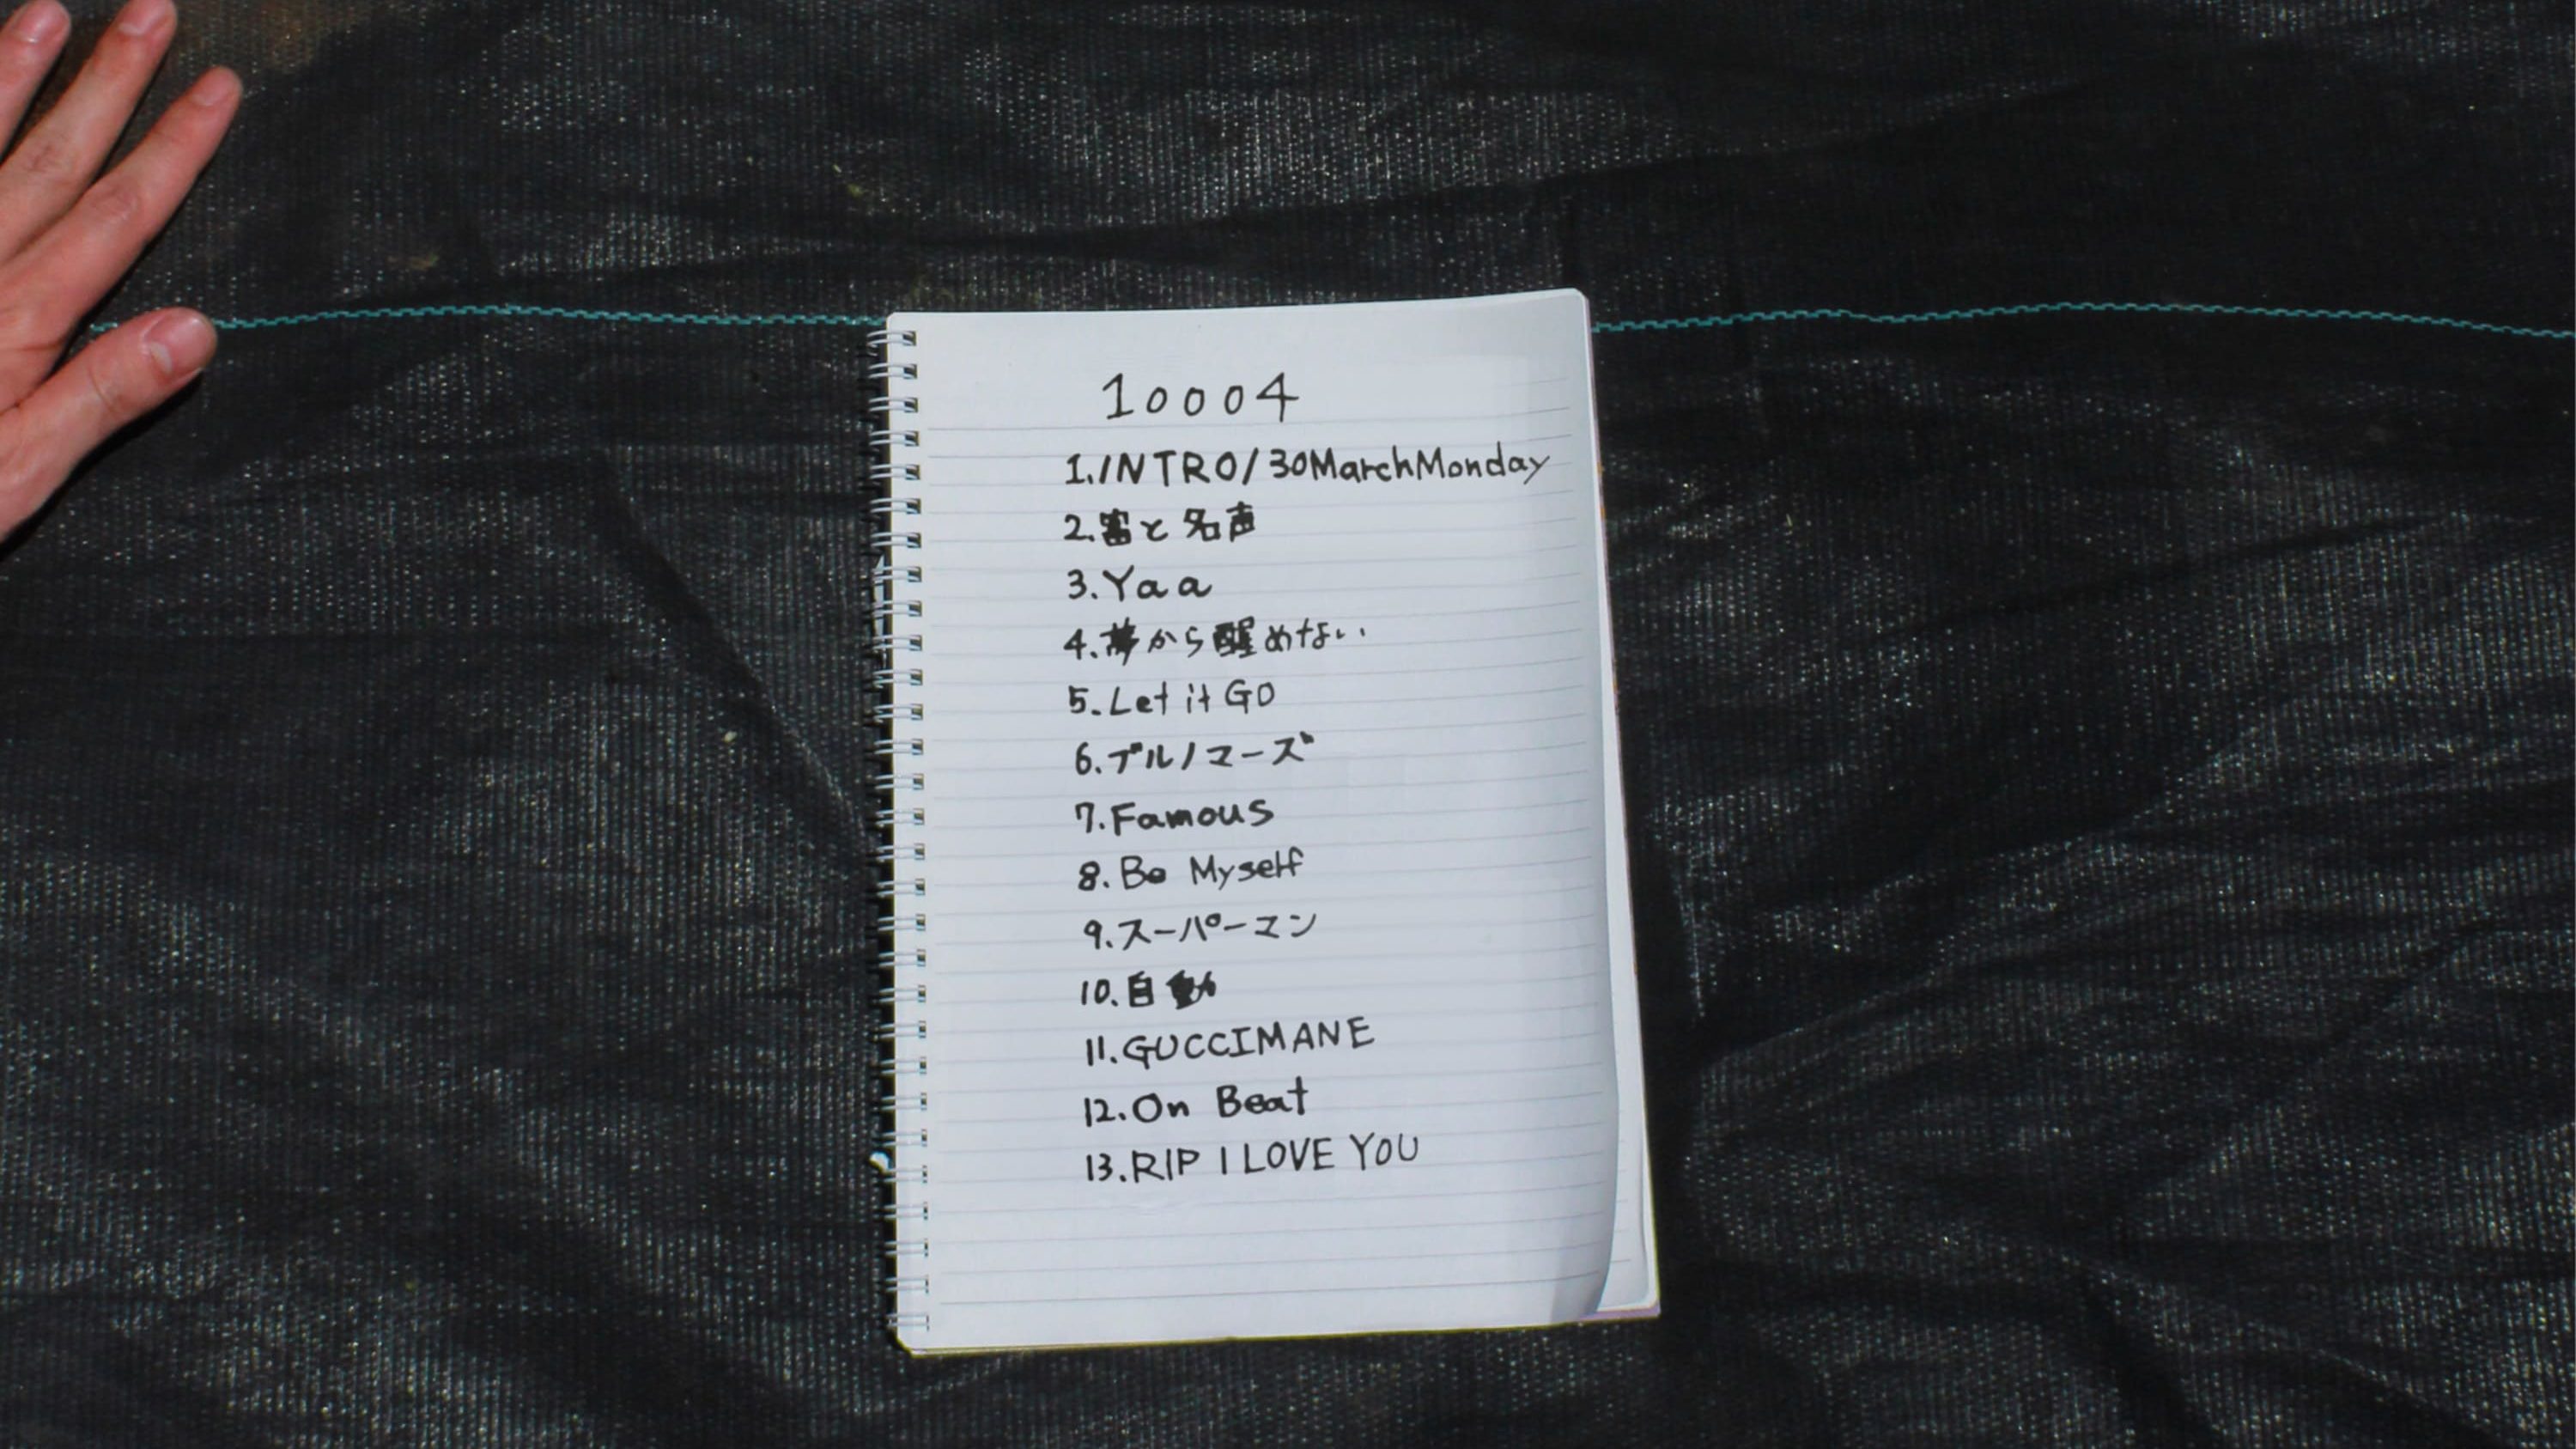 10004
1.INTRO/30MarchMonday
2.富と名声
3.Yaa
4.夢から醒めない
5.Let it GO
6.ブルノマーズ
7.Famous
8.Be Myself
9.スーパーマン
10.自動
11.GUCCIMANE
12.On Beat
13.RIP I LOVE YOU